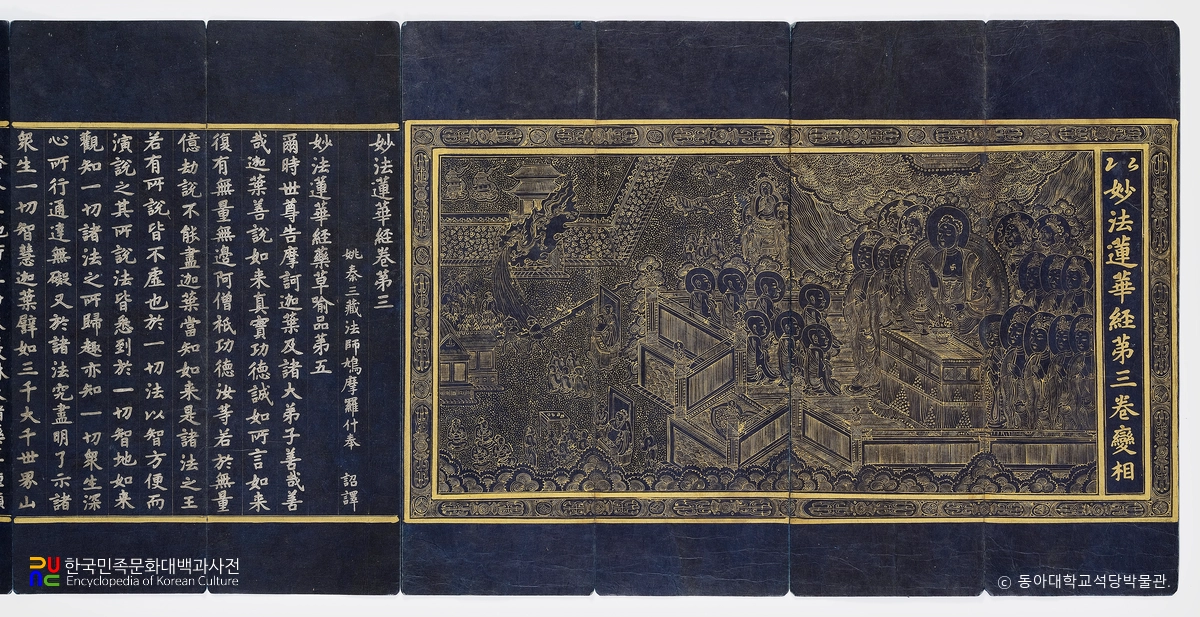 妙法蓮華經第三卷變相
妙法蓮華經卷第三
姚秦三藏法師鳩摩羅什奉 詔譯
妙法蓮華經藥草喻品第五
爾時世尊告摩訶迦葉及諸大弟子善哉善
哉迦葉善說如来真實功德誠如所言如来
復有無量無邊阿僧祇功德汝等若於無量
億劫說不能盡迦葉當知如来是諸法之王
若有所說皆不虛也於一切法以智方便而
演說之其所說法皆悉到於一切智地如来
觀知一切諸法之所歸趣亦知一切衆生深
心所行通達無礙又於諸法究盡明了示諸
衆生一切智慧迦葉譬如三千大千世界山
한국민족문화대백과사전
Encyclopedia of Korean Culture
© 동아대학교석당박물관.